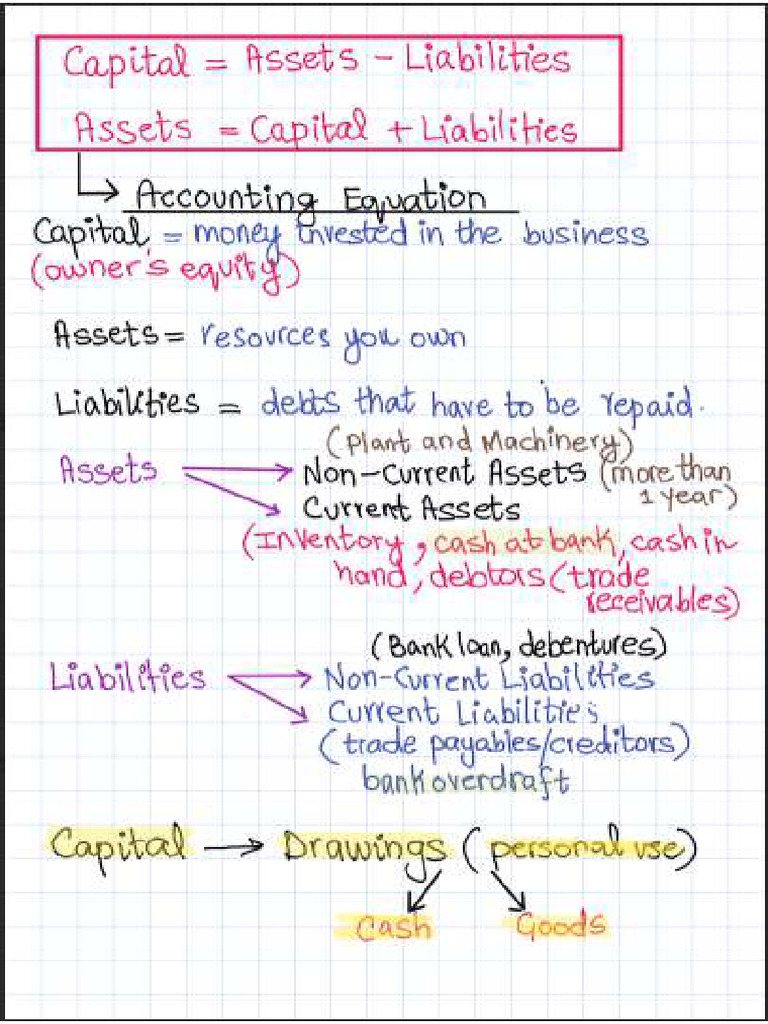 Capital = Assets - Liabilities
Assets = Capital + Liabilities
Accounting Equation
Capital = money invested in the business
(owner's equity)
Assets = resources you own
Liabilities = debts that have to be repaid.
(Plant and Machinery)
Assets → Non-Current Assets (more than
1 year)
Current Assets
(Inventory, cash at bank, cash in
hand, debtors (trade
receivables)
(Bank loan, debentures)
Liabilities → Non-Current Liabilities
Current Liabilities
(trade payables/creditors)
bank overdraft
Capital → Drawings (personal use)
Cash Goods